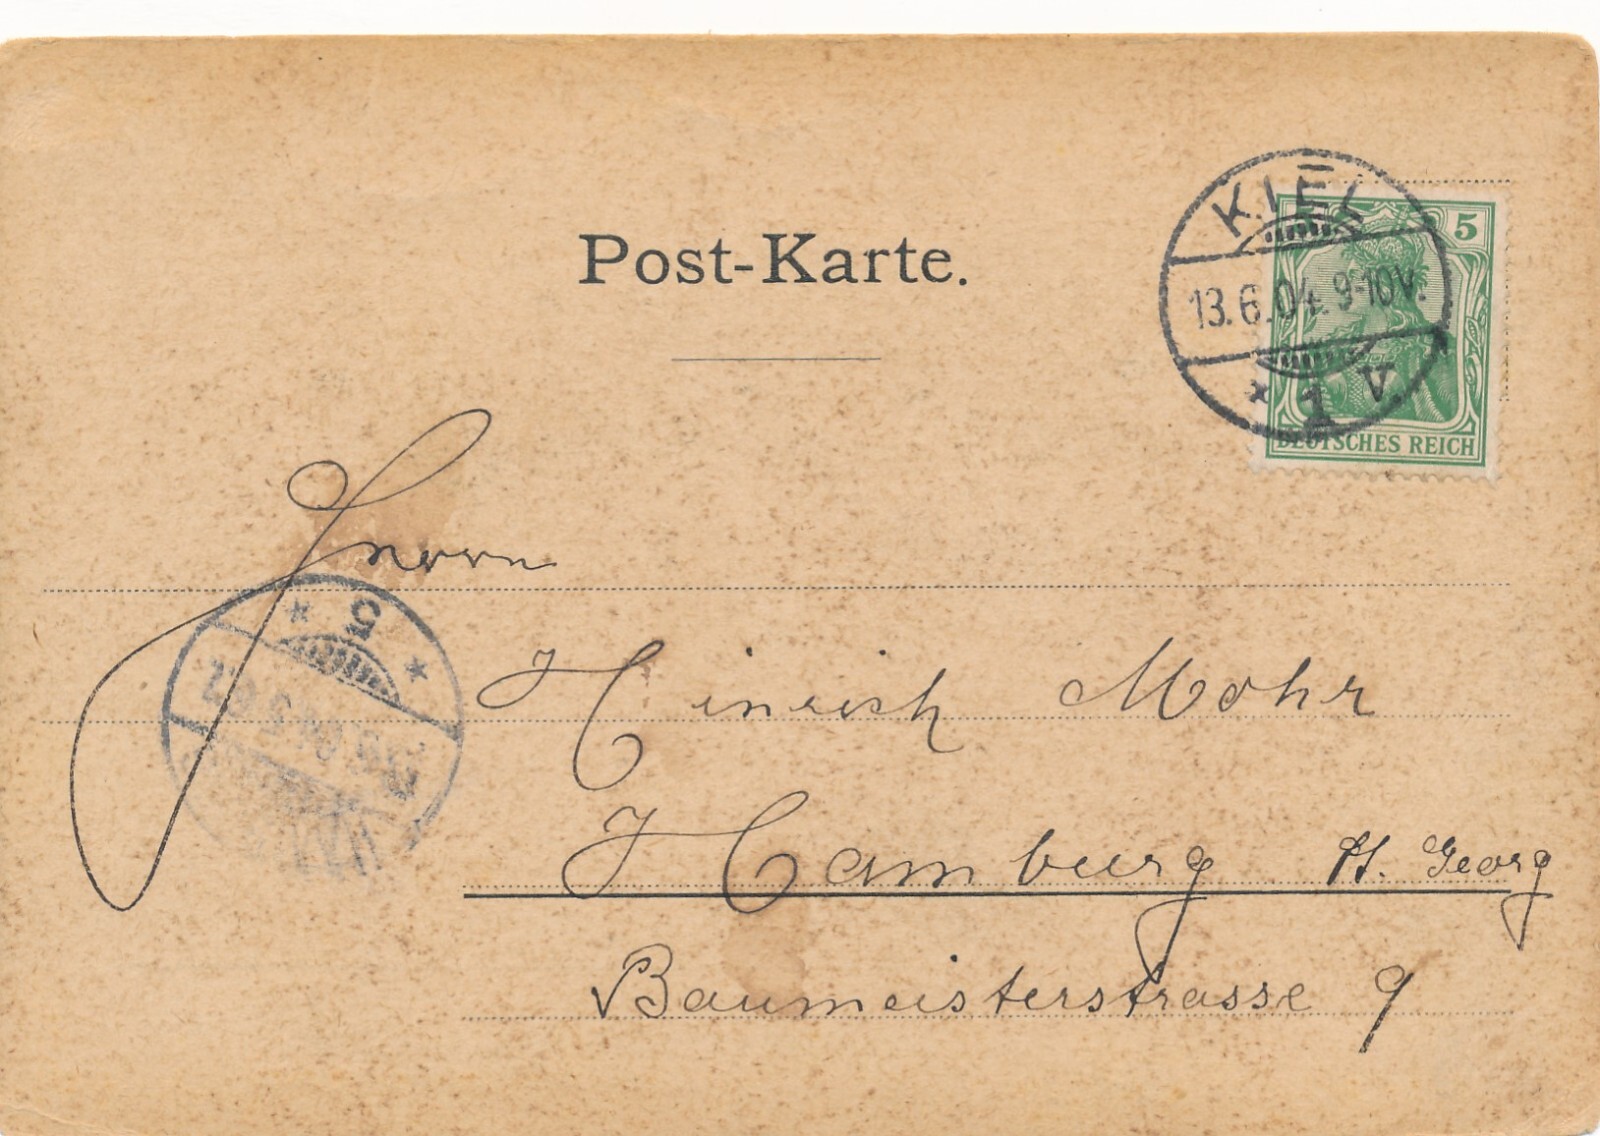 Post-Karte.
KIEL
5 5
13.6.04. 9-10V.
* 1 V.
DEUTSCHES REICH
Herrn
* 5 *
Hinrich Mohr
Hamburg St. Georg
Baumeisterstrasse 9